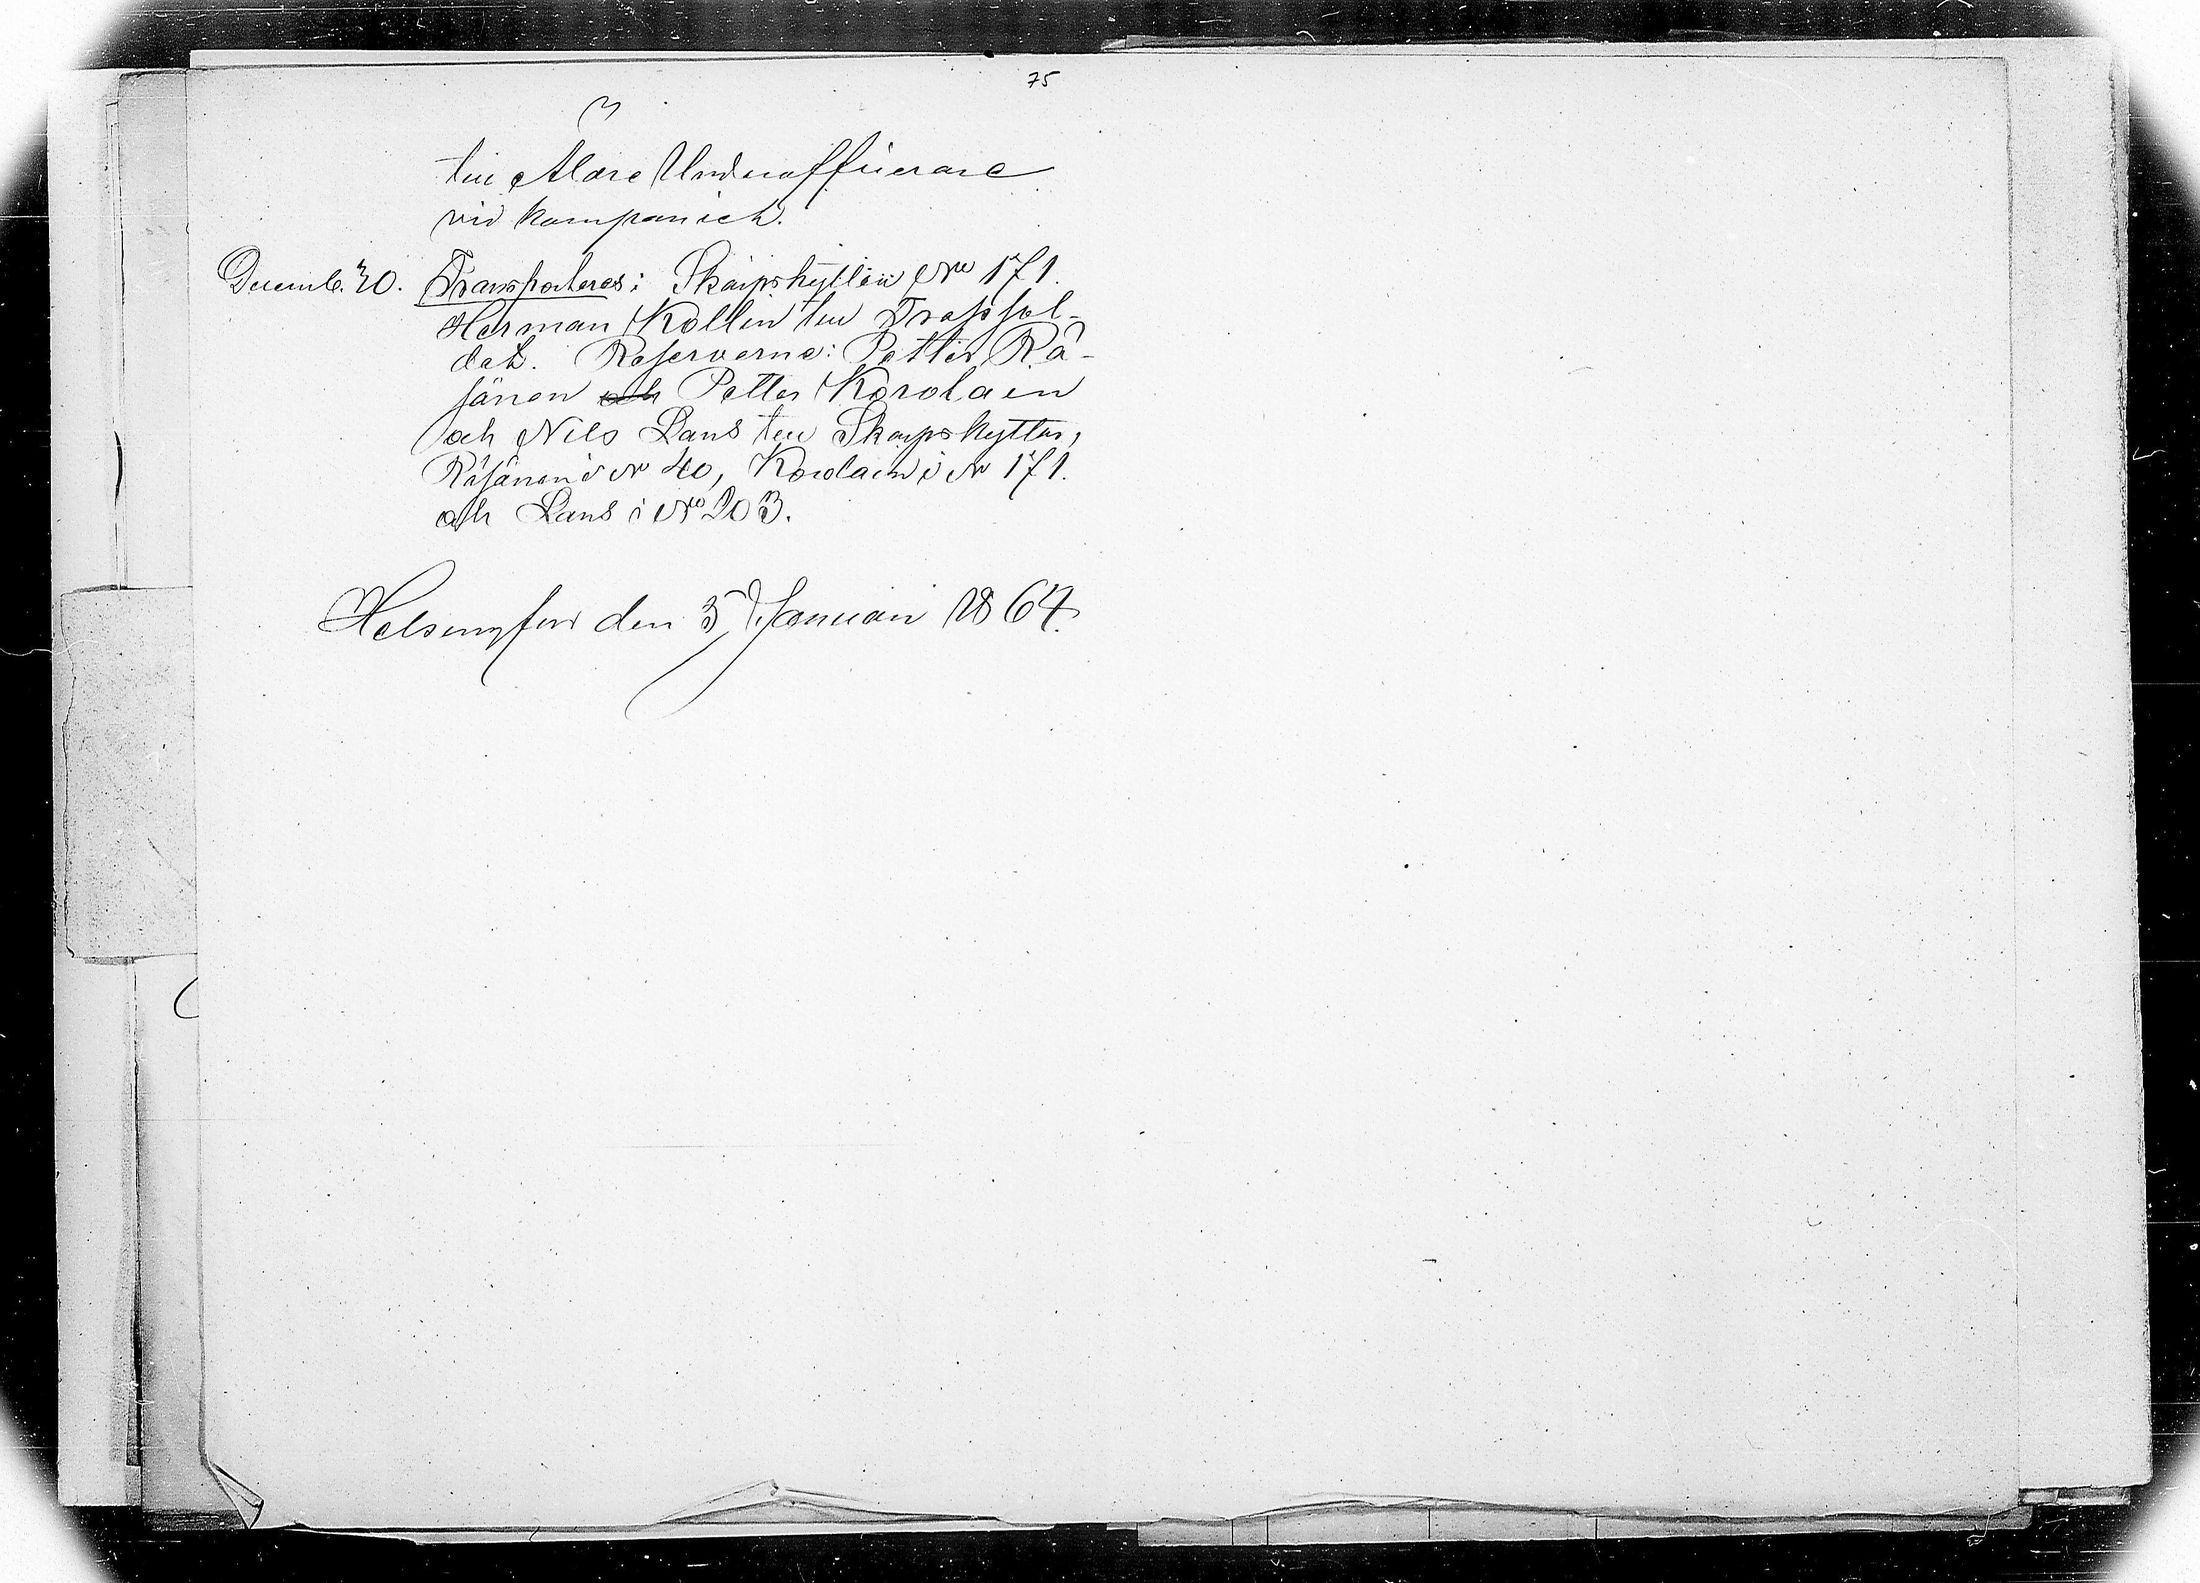 75
till Äldre Underofficerare
vid kompaniet.
Decemb. 30. Transporteras: Skarpskytten No 171.
Herman Kollin till Trossol-
dat. Reserverne: Petter Rä-
sänen och Petter Korolain
och Nils Lans till Skarpskyttar,
Räsänen i N 40, Korolain i N 171.
och Lans i No 203.
Helsingfors den 5 Januari 1864.